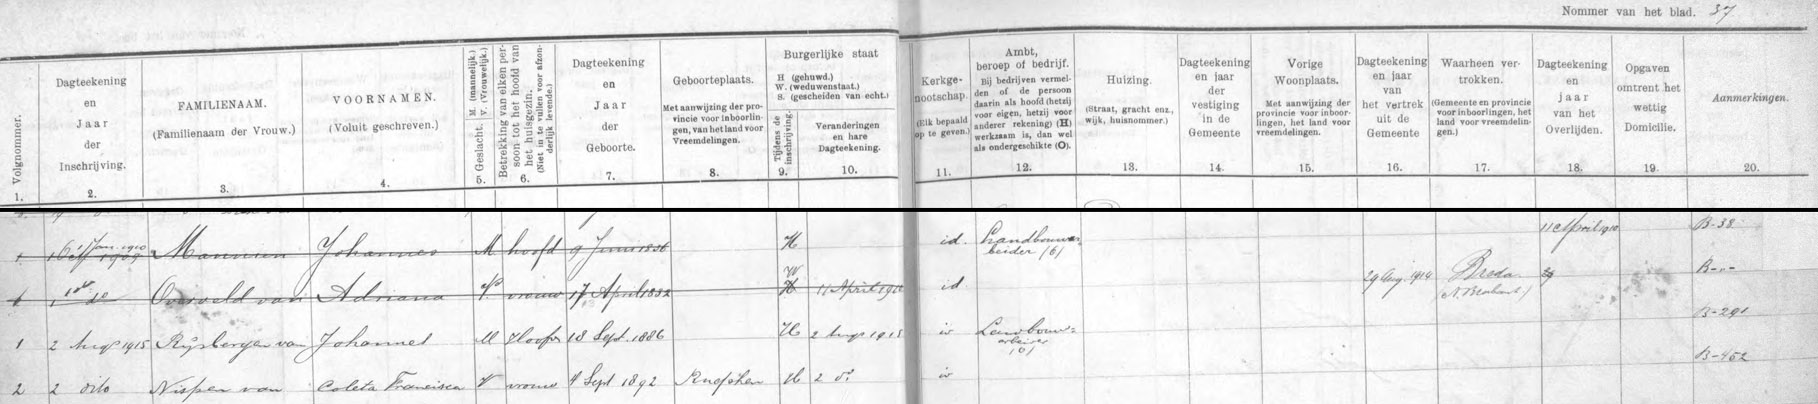 Nommer van het blad. 37
Volgnommer.
1.
Dagteekening
en
Jaar
der
Inschrijving.
2.
FAMILIENAAM.
(Familienaam der Vrouw.)
3.
VOORNAMEN.
(Voluit geschreven.)
4.
Geslacht. M. (mannelijk.)
V. (Vrouwelijk.)
5.
Betrekking van elken per-
soon tot het hoofd van
het huisgezin.
(Niet in te vullen voor afzon-
derlijk levende.)
6.
Dagteekening
en
Jaar
der
Geboorte.
7.
Geboorteplaats.
Met aanwijzing der pro-
vincie voor inboorlin-
gen, van het land voor
Vreemdelingen.
8.
Burgerlijke staat
H (gehuwd.)
W. (weduwenstaat.)
S. (gescheiden van echt.)
Tijdens de
inschrijving.
9.
Veranderingen
en hare
Dagteekening.
10.
Kerkge-
nootschap.
(Elk bepaald
op te geven.)
11.
Ambt,
beroep of bedrijf.
Bij bedrijven vermel-
den of de persoon
daarin als hoofd (hetzij
voor eigen, hetzij voor
anderer rekening) (H)
werkzaam is, dan wel
als ondergeschikte (O).
12.
Huizing.
(Straat, gracht enz.,
wijk, huisnommer.)
13.
Dagteekening
en jaar
der
vestiging
in de
Gemeente
14.
Vorige
Woonplaats.
Met aanwijzing der
provincie voor inboor-
lingen, het land voor
vreemdelingen.
15.
Dagteekening
en jaar
van
het vertrek
uit de
Gemeente
16.
Waarheen ver-
trokken.
(Gemeente en provincie
voor inboorlingen, het
land voor vreemdelin-
gen.)
17.
Dagteekening
en
jaar
van het
Overlijden.
18.
Opgaven
omtrent het
wettig
Domicilie.
19.
Aanmerkingen.
20.
Jan. 1910 Johannes M hoofd 9 Juni 1836 H id. Landbouwar
beider (O) 11 April 1910 B-38
do Overveld van Adriana V. vrouw 17 April 1832 W H 11 April 1910 id 29 Aug. 1914 Breda
(N. Brabant.) B-"-
1 2 Aug 1915 Rijsbergen van Johannes M Hoofd 18 Sept. 1886 H 2 Aug 1915 Landbouw=
arbeider
(O) B-291
2 2 dito Nispen van Coleta Francisca V vrouw 4 Sept 1892 H 2 do B-452